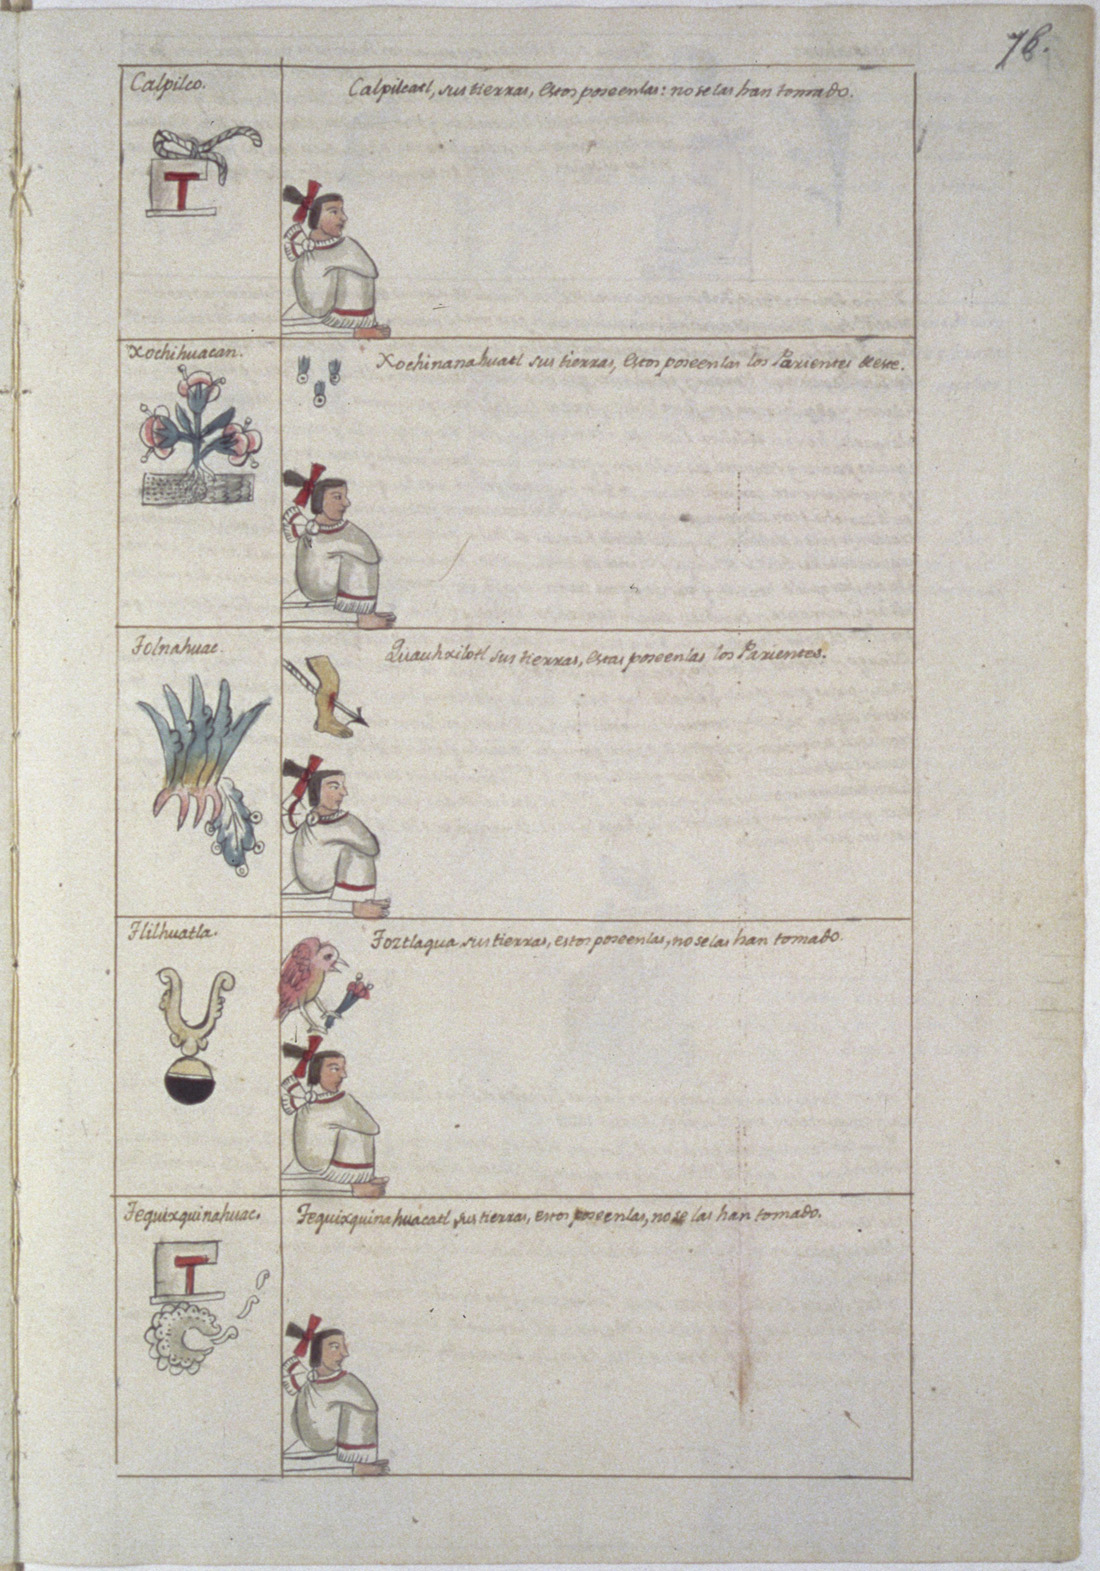 76.
Calpilco.
Calpilcatl, sus tierras, estos poseenlas: no se las han tomado.
Xochihuacan.
Xochinanahuatl sus tierras, estos poseenlas los Parientes deste.
Tolnahuac.
Quauhxilotl sus tierras, estas poseenlas los Parientes.
Tlilhuatla.
Toztlaqua, sus tierras, estos poseenlas, no se las han tomado.
Tequixquinahuac.
Tequixquinahuacatl, sus tierras, estos poseenlas, no se las han tomado.